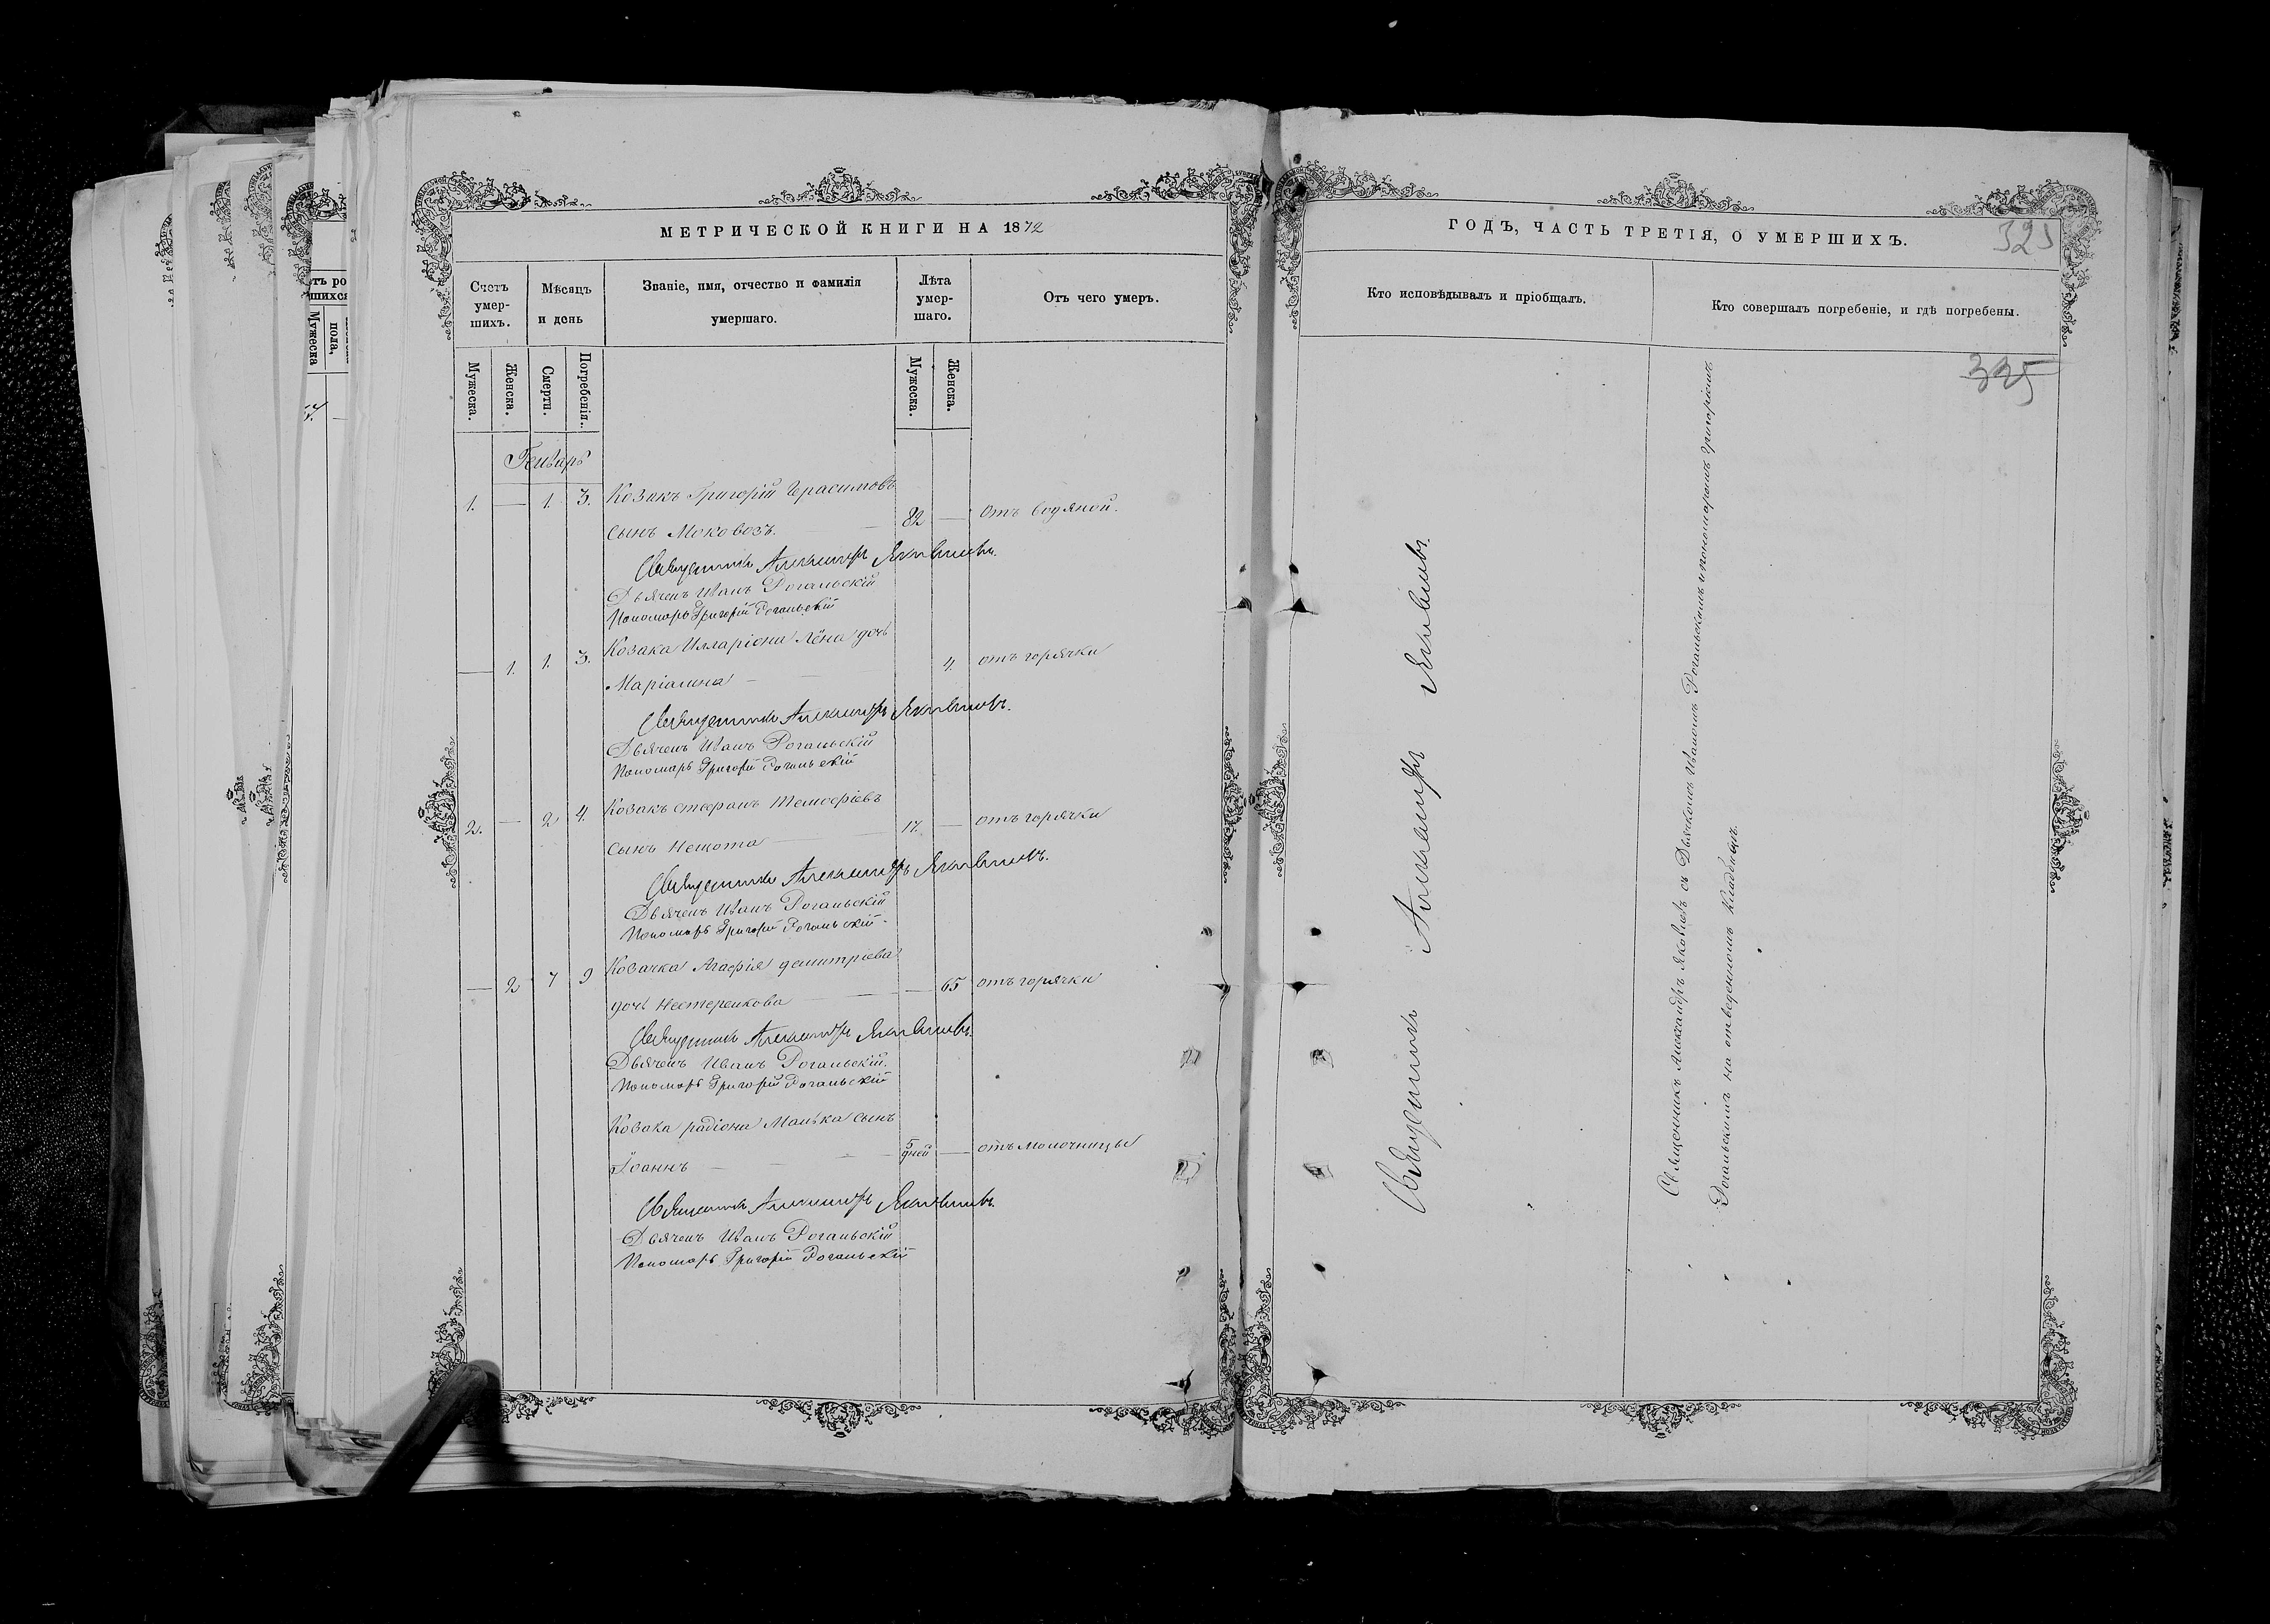 МЕТРИЧЕСКОЙ КНИГИ НА 1872
Счетъ умер-шихъ.
Мѣсяцъ и день
Званіе, имя, отчество и фамилія умершаго.
Лѣта умер-шаго.
Отъ чего умеръ.
Мужеска.
Женска.
Смерти.
Погребенія.
Мужеска.
Женска.
Генварь
1. — 1. 3. Козакъ Григорій Герасимовъ
сынъ Моковозъ. — 82 — отъ водяной.
Священникъ Александръ Яковлевъ.
Дьячекъ Иванъ Рогальскій
Пономарь Григорій Рогальскій
— 1. 1. 3. Козака Илларіона Лёна дочь
Маріамна — 4. отъ горячки
Священникъ Александръ Яковлевъ.
Дьячекъ Иванъ Рогальскій
Пономарь Григорій Рогальскій
2. — 2 4. Козакъ Стефанъ Тимофіевъ
сынъ — 17. — отъ горячки
Священникъ Александръ Яковлевъ.
Дьячекъ Иванъ Рогальскій
Пономарь Григорій Рогальскій
— 2 7 9 Козачка Агафія Димитріева
дочь Нестеренкова — 65 отъ горячки
Священникъ Александръ Яковлевъ.
Дьячекъ Иванъ Рогальскій.
Пономарь Григорій Рогальскій
Козака Радіона Манька сынъ
Іоаннъ — 5 дней — отъ молочницы
Священникъ Александръ Яковлевъ.
Дьячекъ Иванъ Рогальскій
Пономарь Григорій Рогальскій
ГОДЪ, ЧАСТЬ ТРЕТІЯ, О УМЕРШИХЪ.
325
Кто исповѣдывалъ и пріобщалъ.
Кто совершалъ погребеніе, и гдѣ погребены.
325
Священникъ Александръ Яковлевъ.
Священникъ Александръ Яковлевъ съ Дьячкомъ Иваномъ Рогальскимъ и пономаремъ Григоріемъ
Рогальскимъ на отведенномъ кладбищѣ.